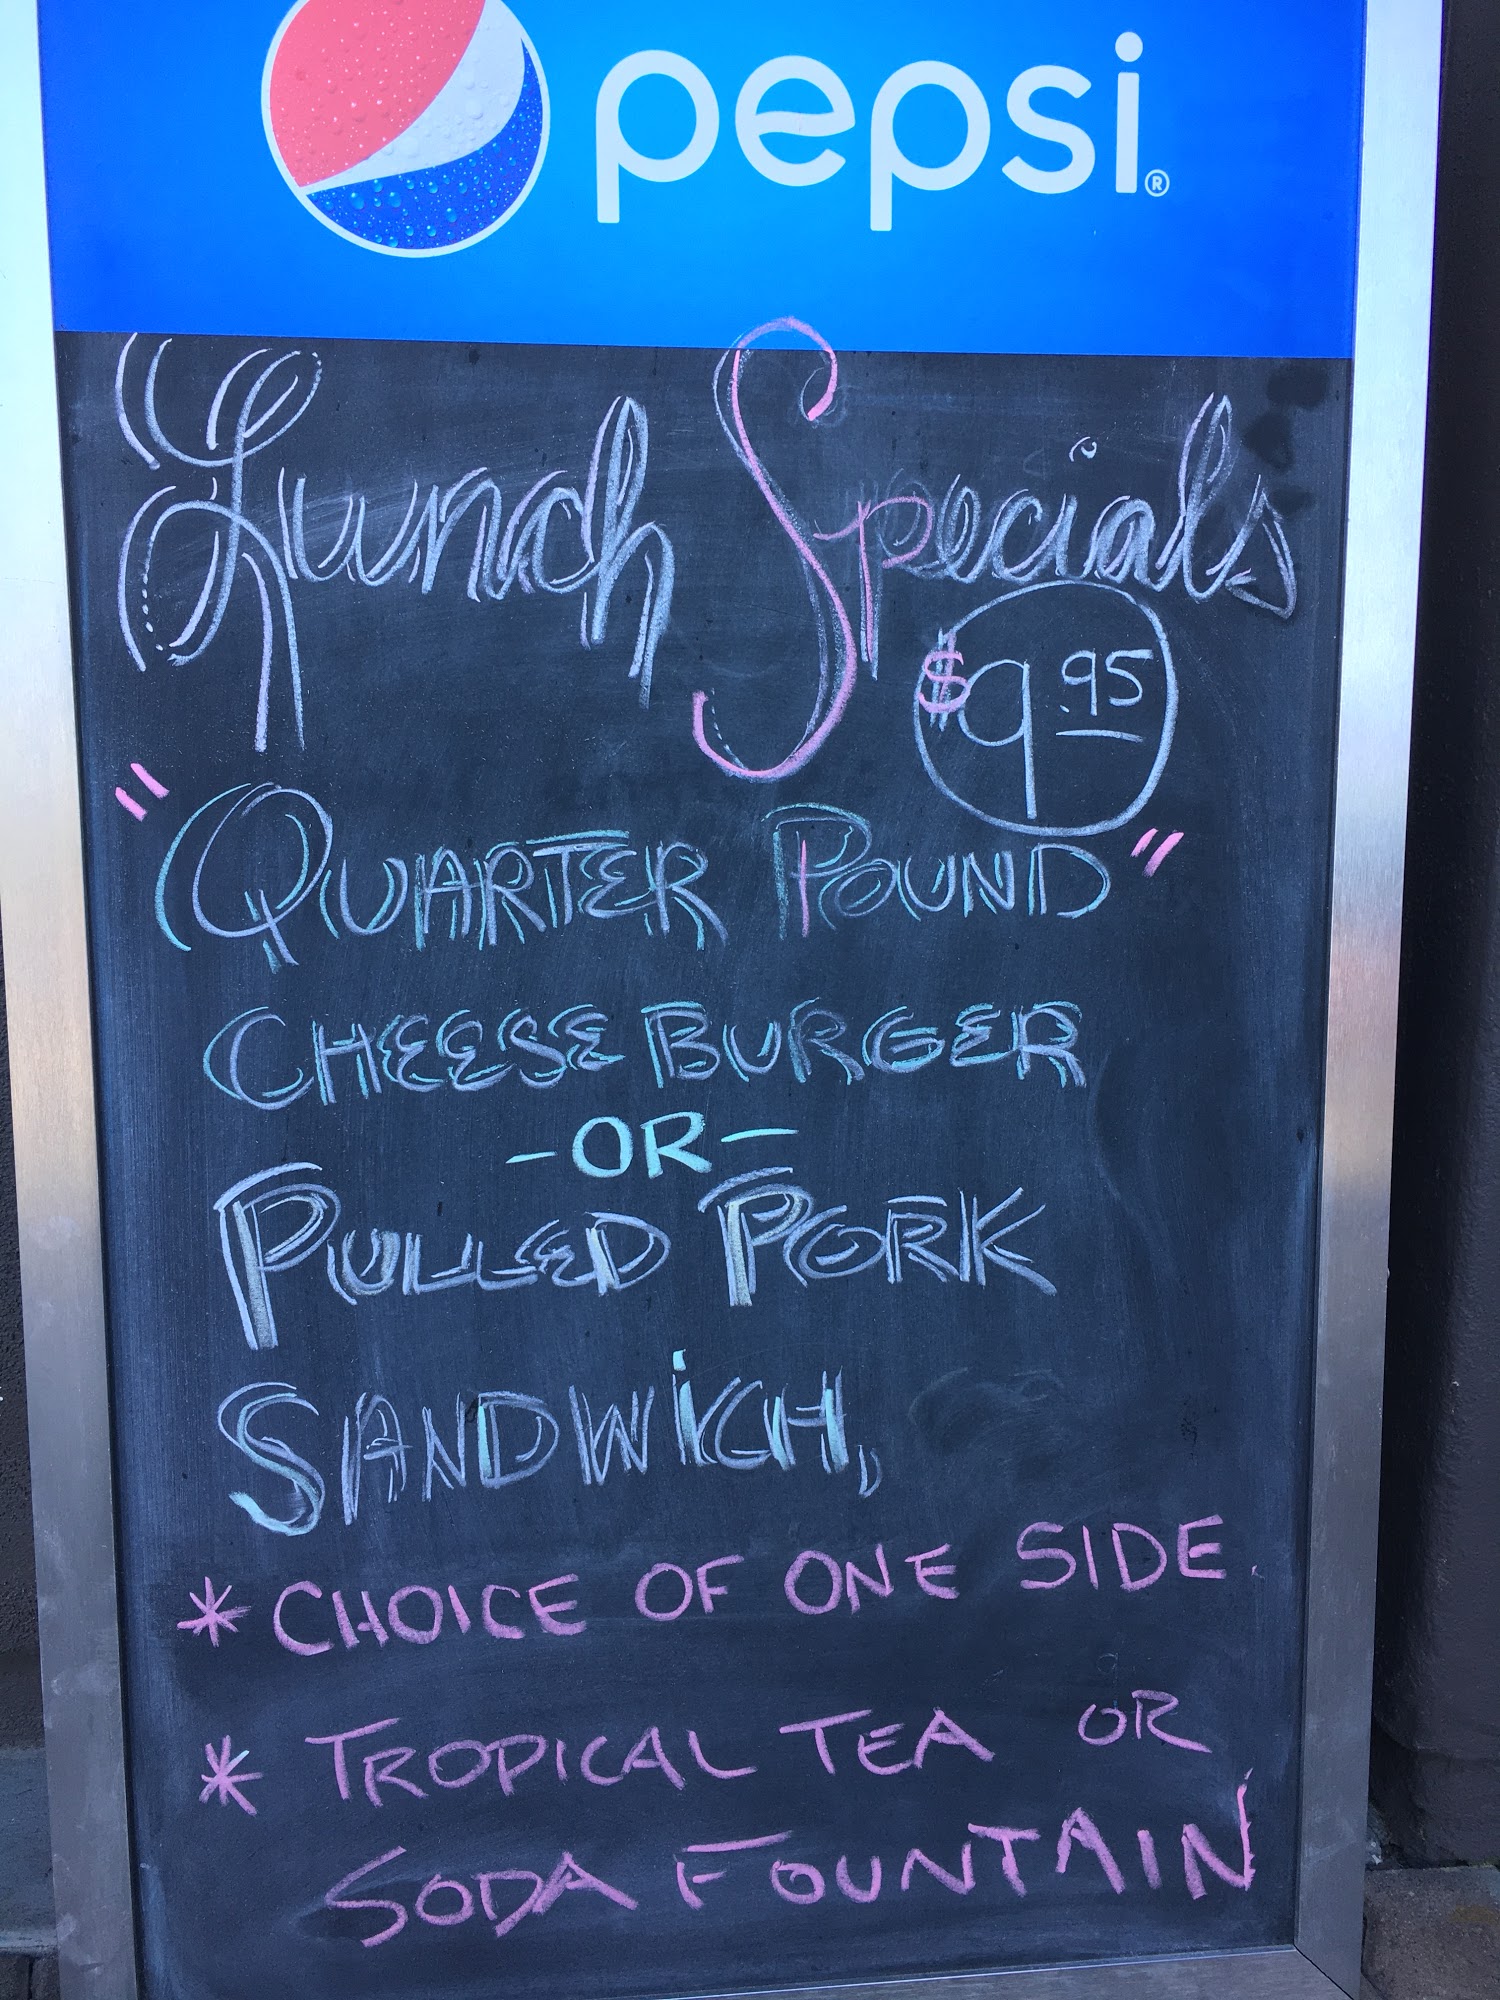 pepsi®
Lunch Specials
$9.95
"QUARTER POUND"
CHEESE BURGER
-OR-
PULLED PORK
SANDWiCH,
* CHOICE OF ONE SIDE.
* TROPICAL TEA OR
SODA FOUNTAIN